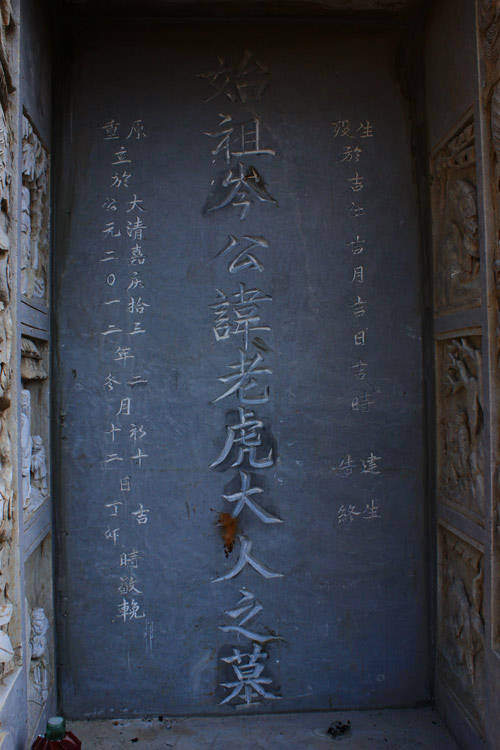 生 建生
殁於吉年吉月吉日吉時 告終
始祖岑公諱老虎大人之墓
原 大清嘉庆拾三年二月初十日吉時敬輓
重立於公元二〇一二 冬十二 丁卯